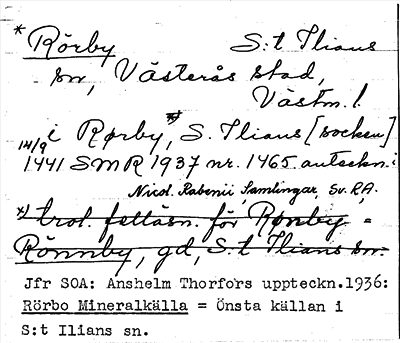 * Rörby S:t Ilians
sn, Västerås stad,
Västm. l.
i Rørby, *) S. Ilians [socken]
14/9 1441 SMR 1937 nr. 1465. anteckn. i
Nicol. Rabenii, Samlingar, Sv. RA.
*) trol. felläsn. för Rønby =
Rönnby, gd, S:t Ilians sn.
Jfr SOA: Anshelm Thorfors uppteckn.1936:
Rörbo Mineralkälla = Önsta källan i
S:t Ilians sn.